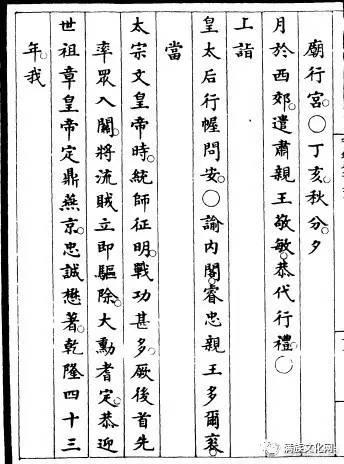 廟行宮。○丁亥。秋分。夕
月於西郊。遣肅親王敬敏。恭代行禮。○
上詣
皇太后行幄問安。○諭內閣。睿忠親王多爾袞。
當
太宗文皇帝時。統師征明。戰功甚多。厥後首先
率眾入關。將流賊立即驅除。大勳耆定。恭迎
世祖章皇帝定鼎燕京。忠誠懋著。乾隆四十三
年。我
满族文化网